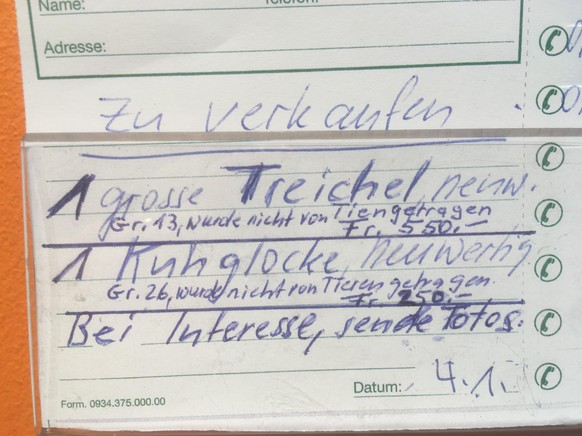 Name: Telefon:
Adresse:
Zu verkaufen
1 grosse Treichel, neuw.
Gr. 13, wurde nicht von Tieren getragen
Fr. 550.–
1 Kuhglocke, neuwertig
Gr. 26, wurde nicht von Tieren getragen.
Fr. 250.–
Bei Interesse, sende Fotos.
Datum: 4.1.
Form. 0934.375.000.00